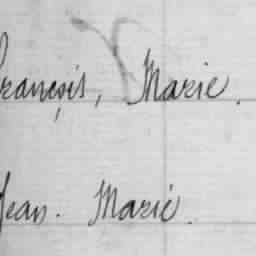 François, Marie.
Jean. Marie.